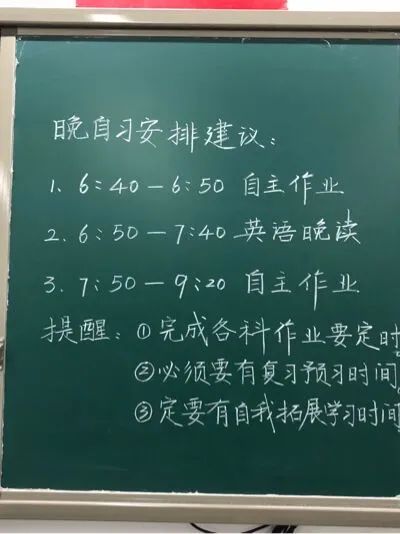 晚自习安排建议：
1. 6：40－6：50 自主作业
2. 6：50－7：40 英语晚读
3. 7：50－9：20 自主作业
提醒：①完成各科作业要定时
②必须要有复习预习时间
③定要有自我拓展学习时间